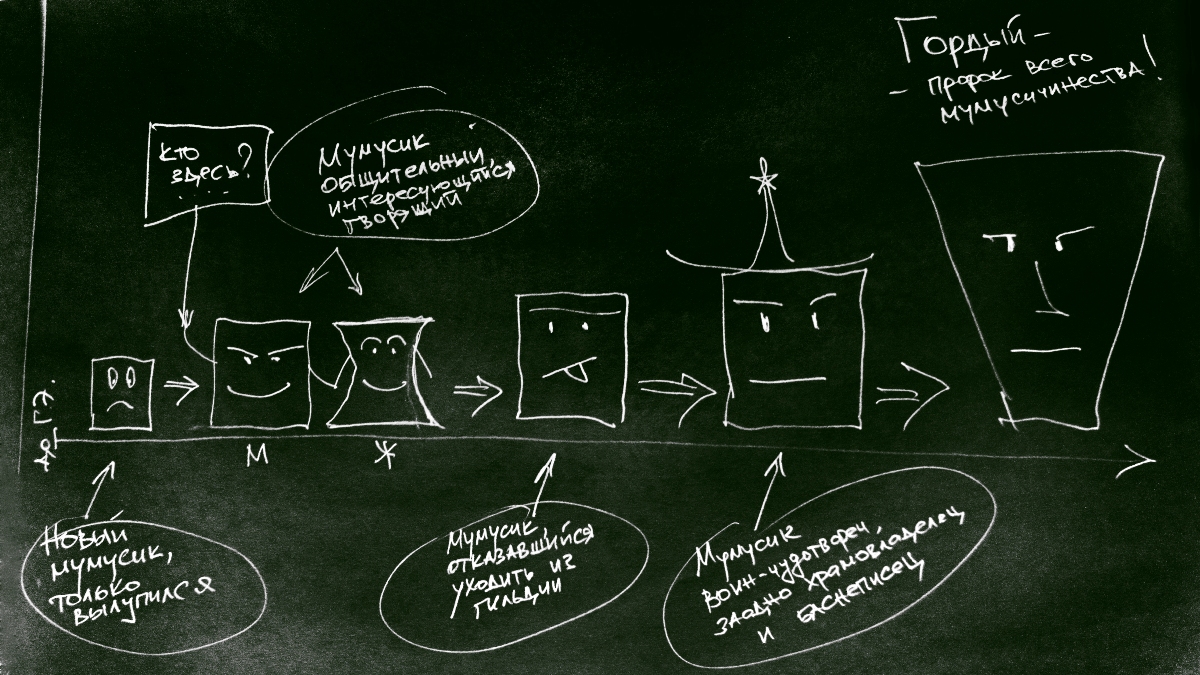 Гордый –
– пророк всего
мумусичинества!
кто
здесь?
Мумусик
общительный,
интересующийся
творящий
до Г.Э.
М
Ж
Новый
мумусик,
только
вылупился
Мумусик
отказавшийся
уходить из
гильдии
Мумусик
воин-чудотворец,
заодно храмовладелец
и баснеписец